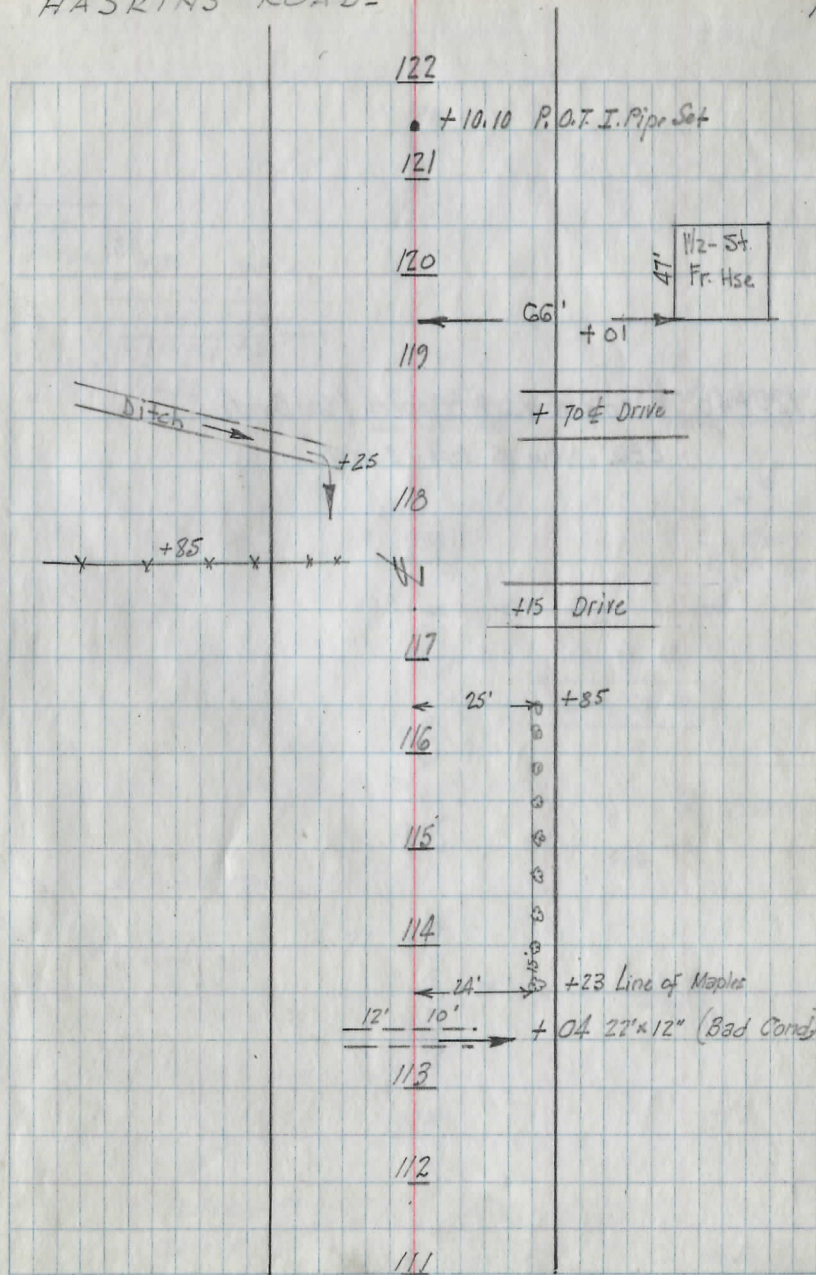 HASKINS ROAD-
122
+10.10 P.O.T. I. Pipe Set
121
1½-St.
Fr. Hse
47'
120
66'
+01
119
+70 ℄ Drive
Ditch
+25
118
+85
℄
+15 Drive
117
25' +85
116
115
114
15"
24' +23 Line of Maples
12' 10' +04 22'x12" (Bad Cond)
113
112
111